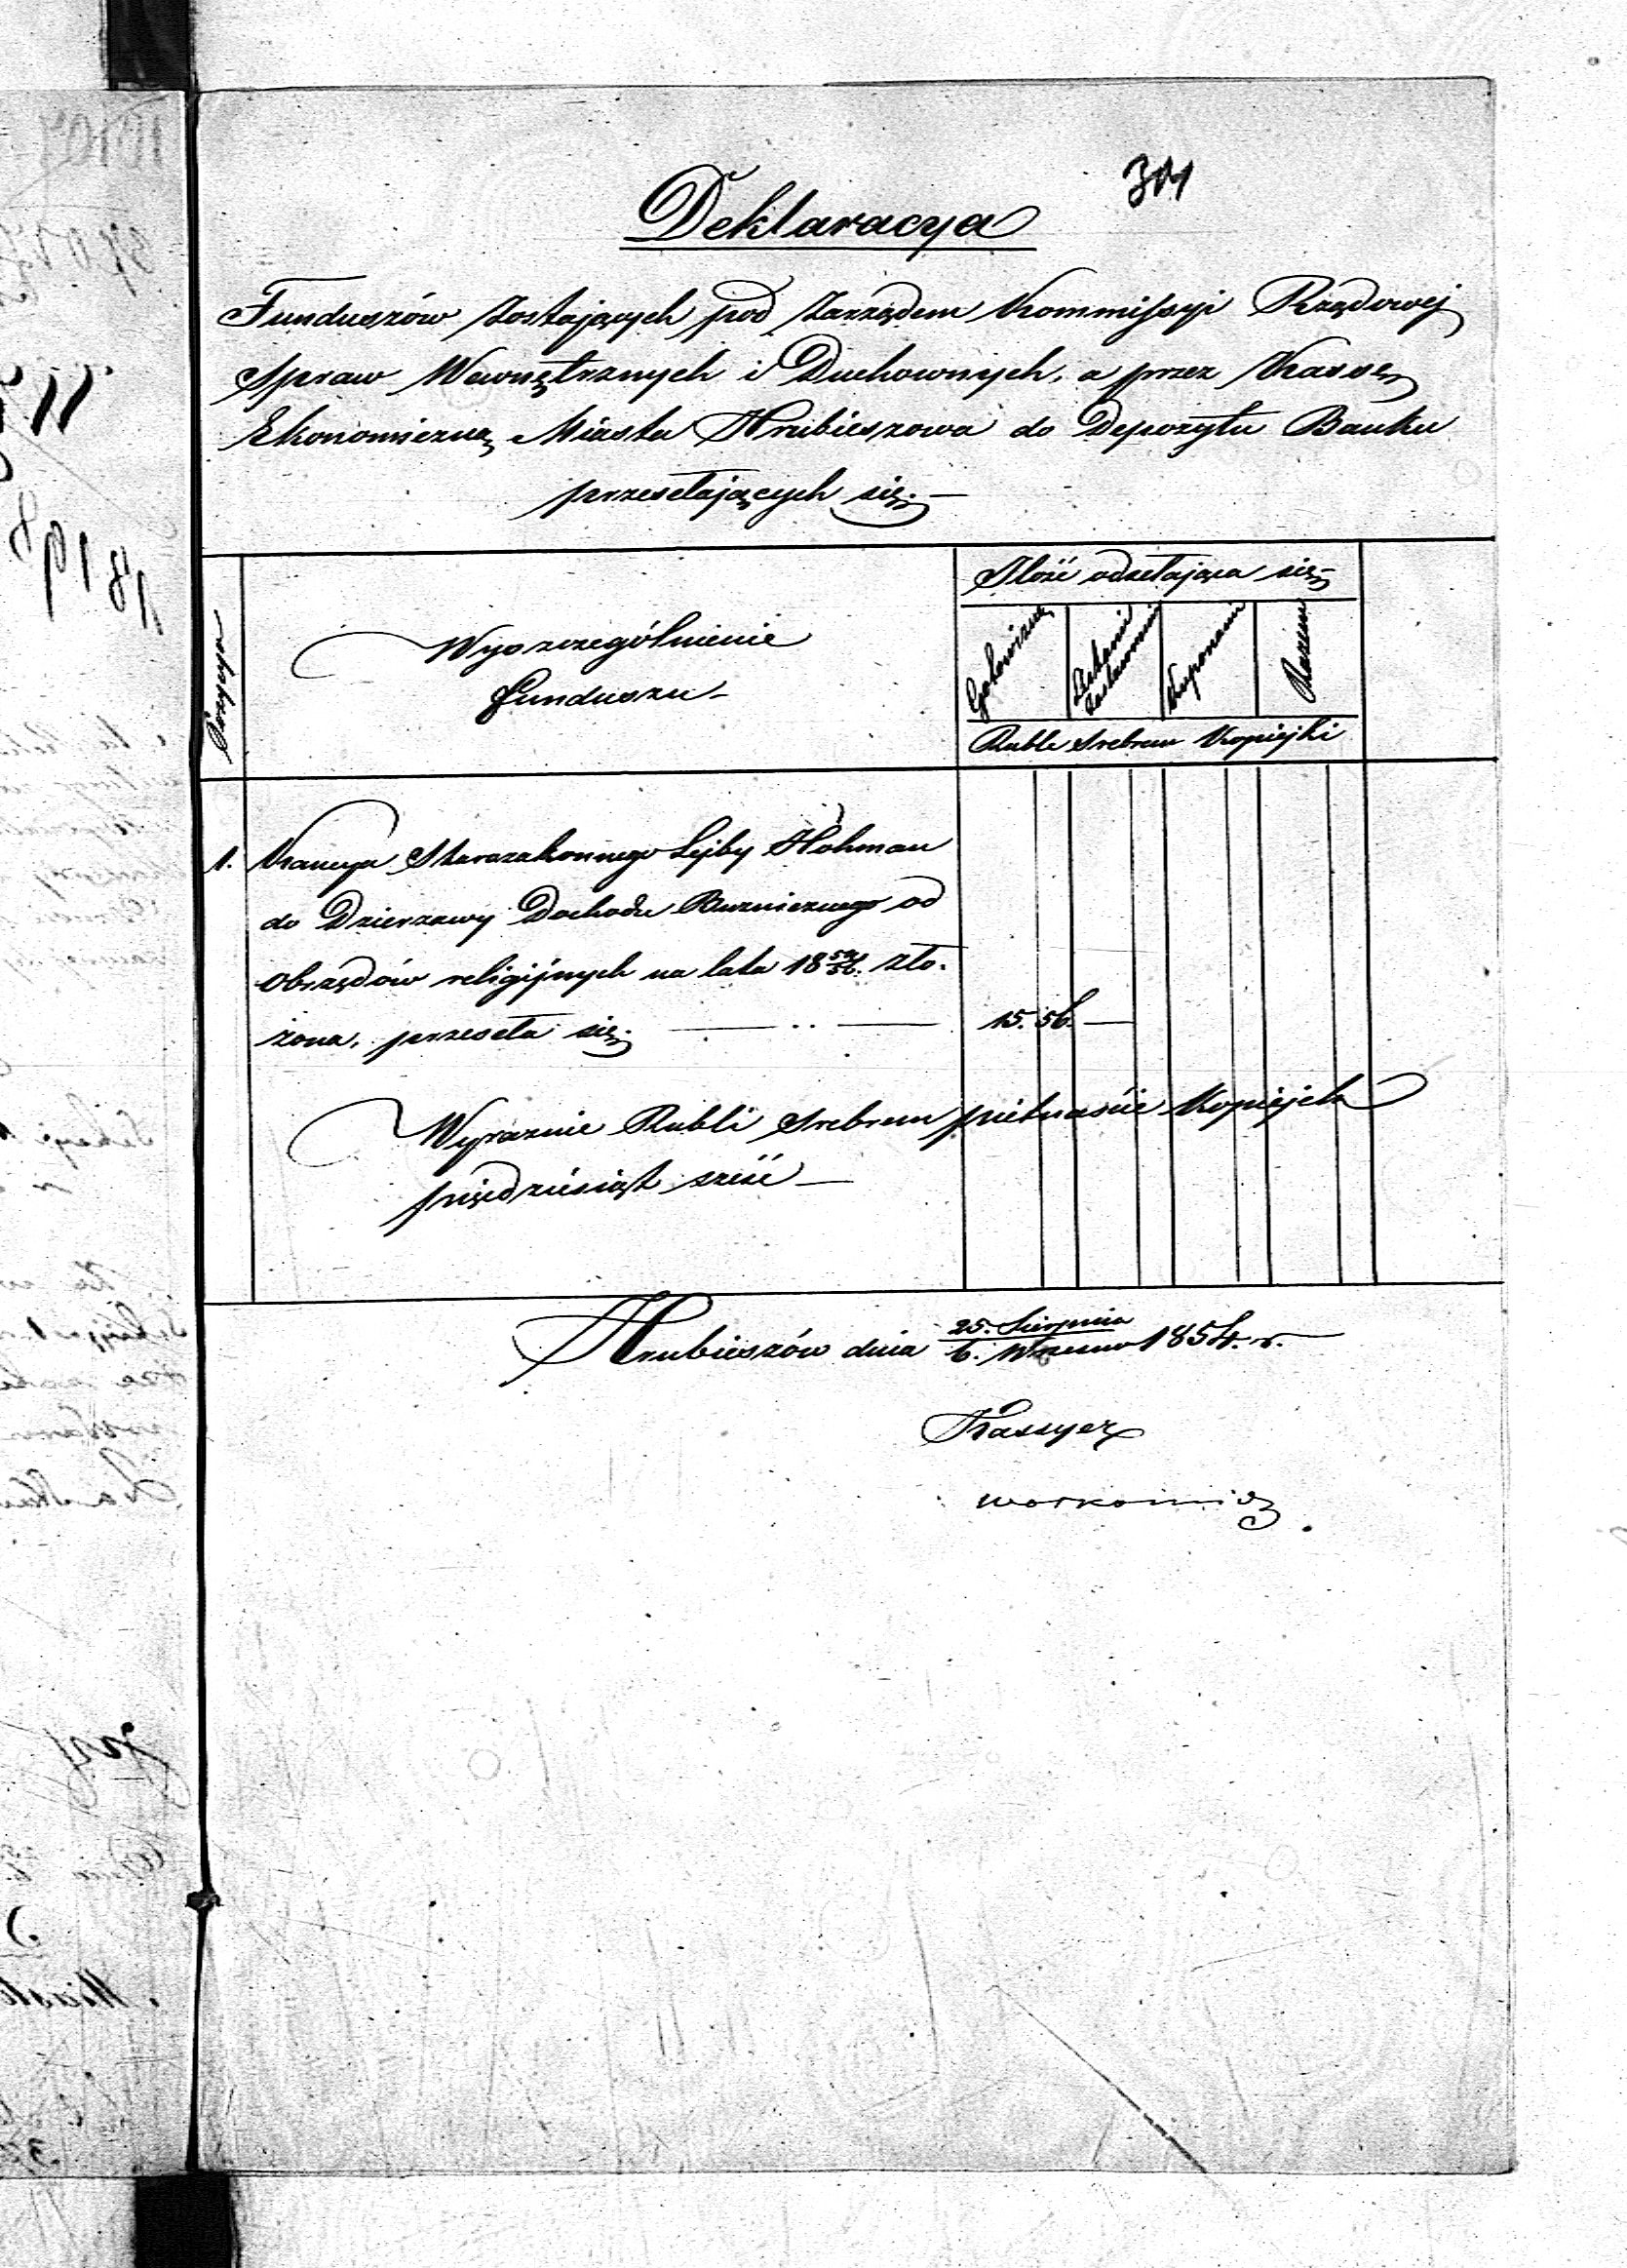 304
Deklaracya
Funduszów zostających pod Zarządem Kommissyi Rządowej
Spraw Wewnętrznych i Duchownych, a przez Kassę
Ekonomiczną Miasta Hrubieszowa do Depozytu Banku
przesełających się.—
Pozycya
Wyszczególnienie
Funduszu—
Ilość odsełająca się
Gotowizną
Listami
Zastawnemi
Kuponami
Razem
Ruble Srebrem Kopiejki
1. Kaucya Starozakonnego Lejby Hohman
do Dzierzawy Dochodu Buzniczego od
obrzędów religijnych na lata 18 54/56. zło-
żona, przeseła się. — .. — 15. 56. —
Wyraznie Rubli Srebrem pietnaście Kopiejek
piędziesiąt sześć —
Hrubieszów dnia 25. Sierpnia
6. Wrzesnia 1854. r.
Kassyer